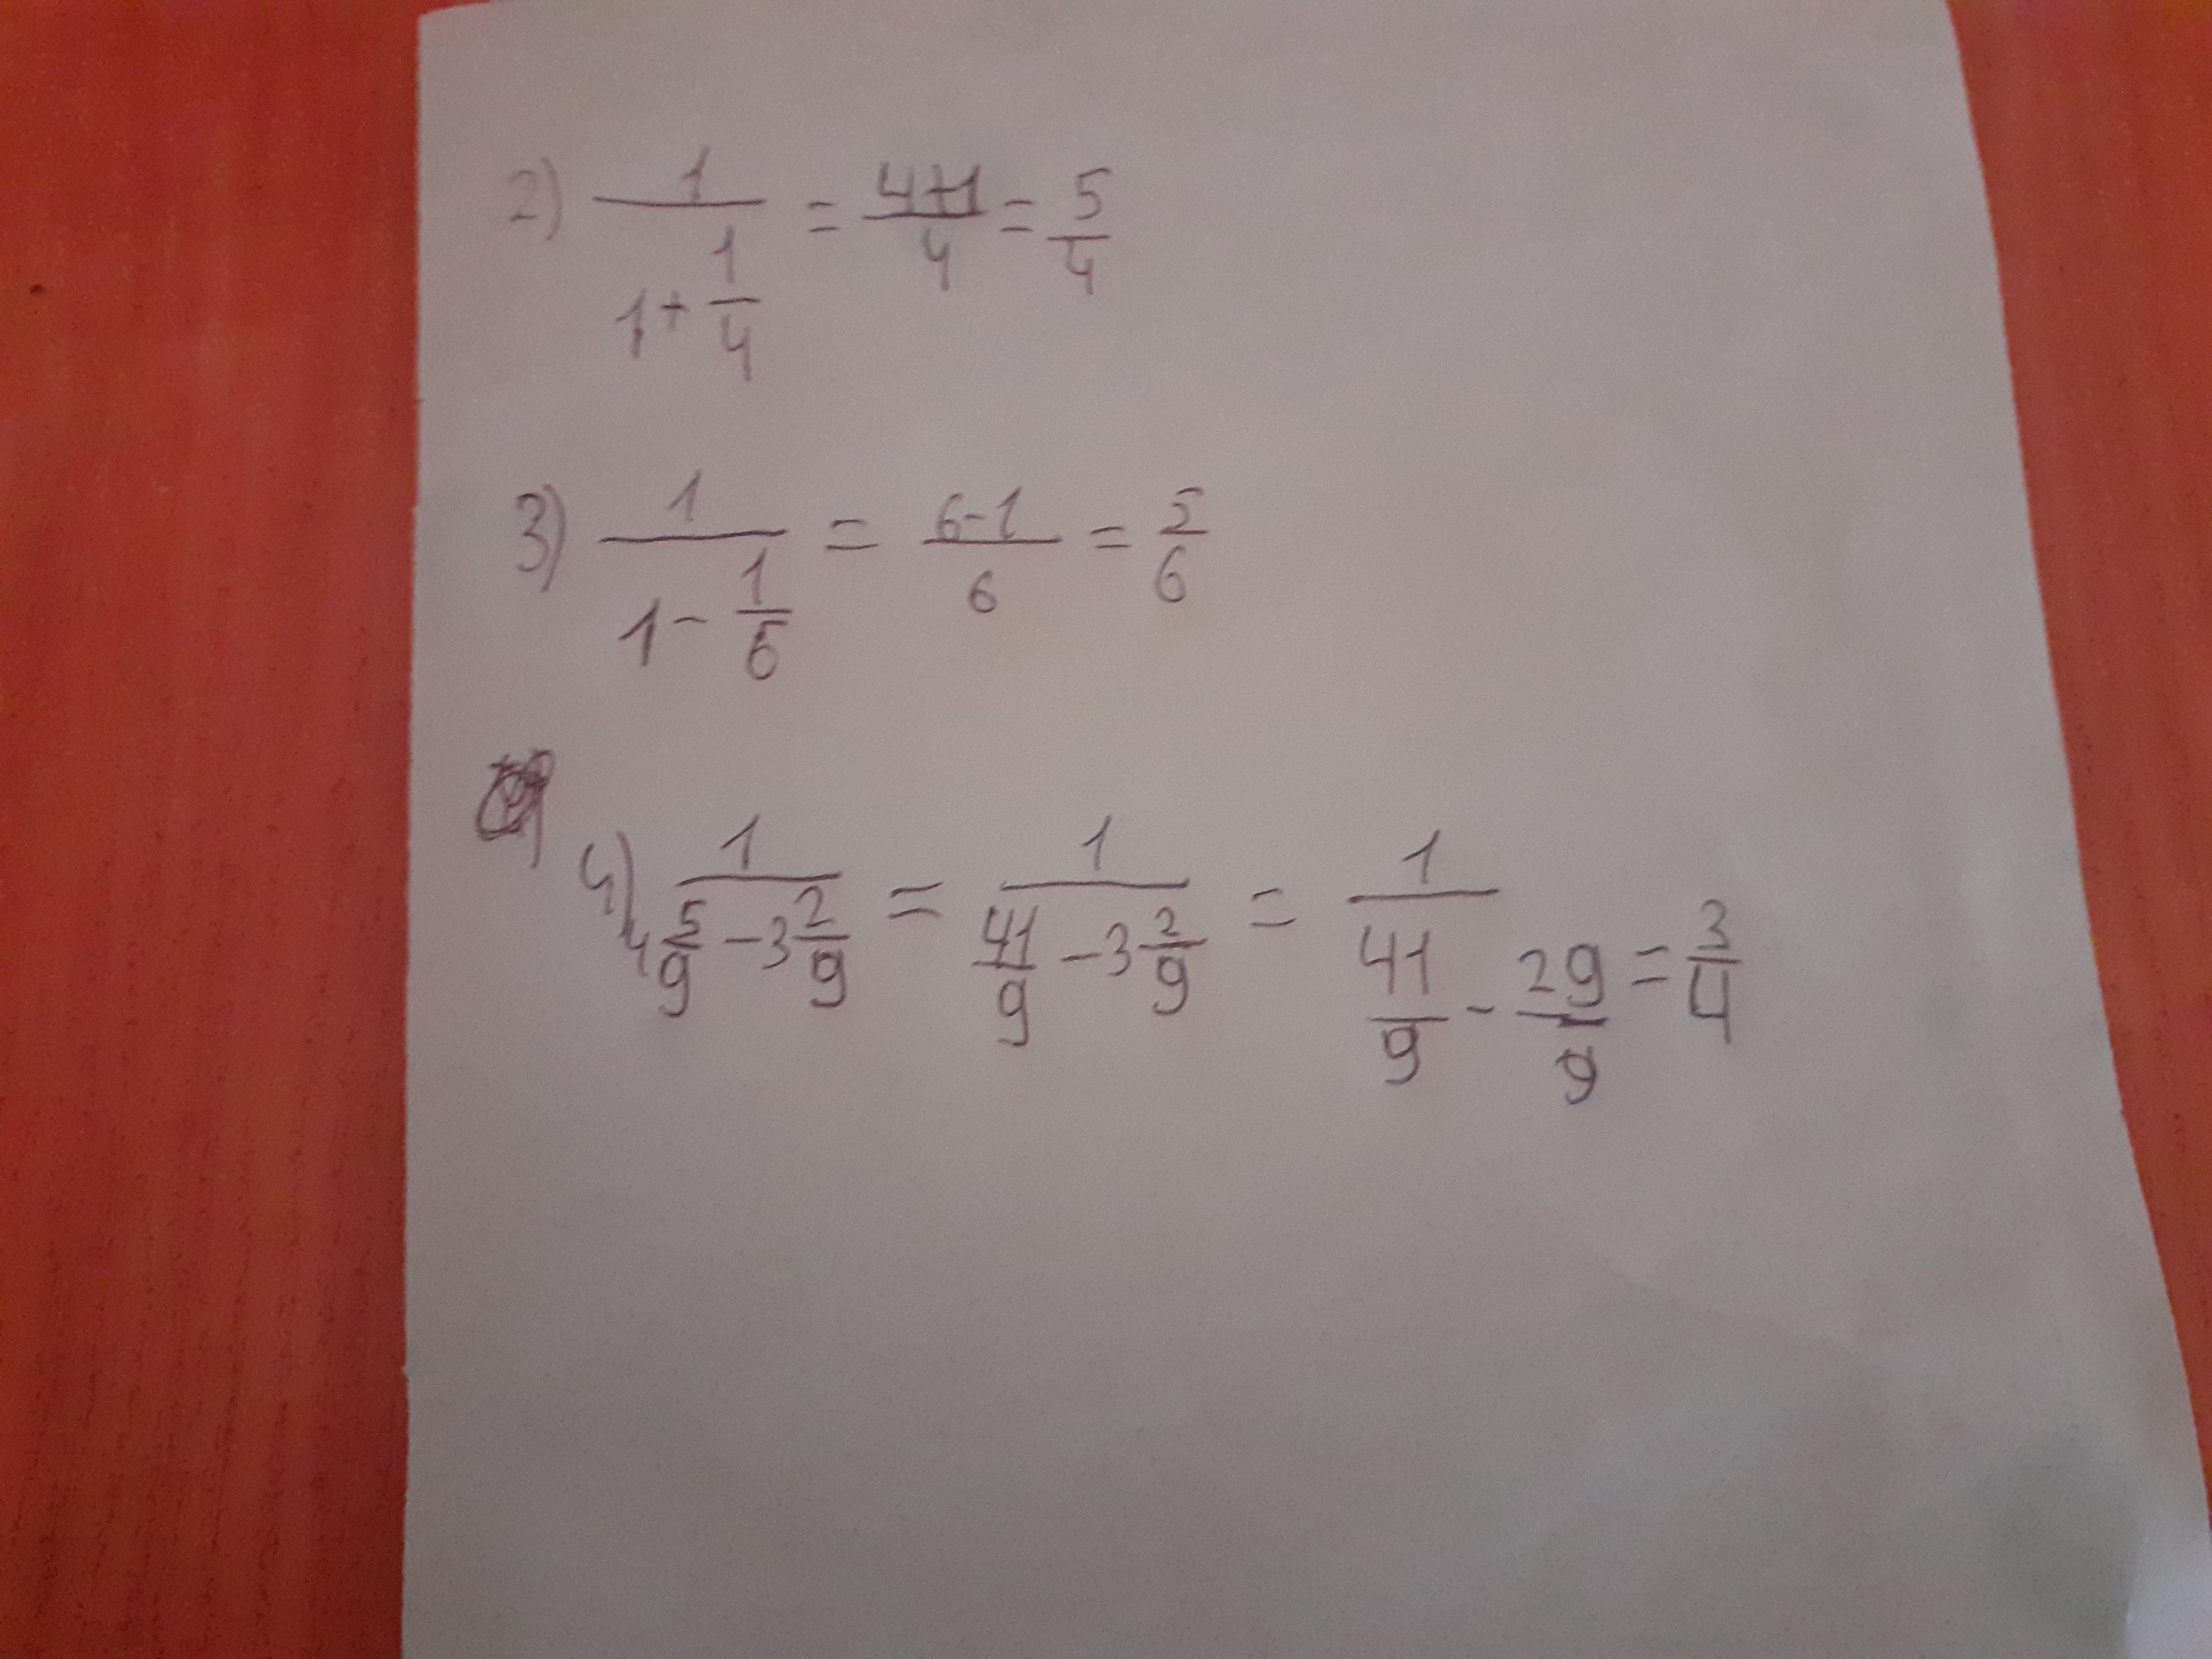 2) 1/(1+1/4) = (4+1)/4 = 5/4
3) 1/(1-1/6) = (6-1)/6 = 5/6
4) 1/(4 5/9 - 3 2/9) = 1/(41/9 - 3 2/9) = 1/(41/9 - 29/9) = 3/4